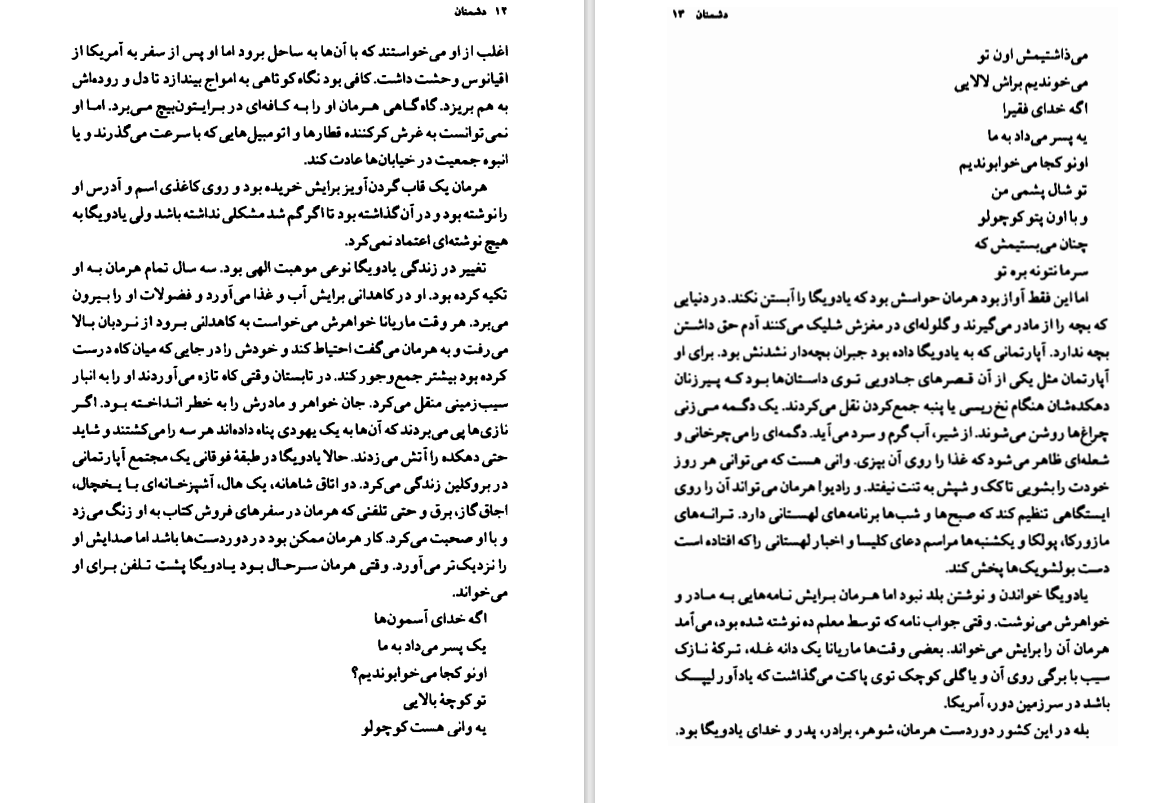 ۱۲ دشمنان
اغلب از او می‌خواستند که با آن‌ها به ساحل برود اما او پس از سفر به آمریکا از
اقیانوس وحشت داشت. کافی بود نگاه کوتاهی به امواج بیندازد تا دل و روده‌اش
به هم بریزد. گاه‌گاهی هرمان او را به کافه‌ای در برایتون‌بیچ می‌برد. اما او
نمی‌توانست به غرش کرکننده قطارها و اتومبیل‌هایی که با سرعت می‌گذرند و یا
انبوه جمعیت در خیابان‌ها عادت کند.
هرمان یک قاب گردن‌آویز برایش خریده بود و روی کاغذی اسم و آدرس او
را نوشته بود و در آن گذاشته بود تا اگر گم شد مشکلی نداشته باشد ولی یادویگا به
هیچ نوشته‌ای اعتماد نمی‌کرد.
تغییر در زندگی یادویگا نوعی موهبت الهی بود. سه سال تمام هرمان به او
تکیه کرده بود. او در کاهدانی برایش آب و غذا می‌آورد و فضولات او را بیرون
می‌برد. هر وقت ماریانا خواهرش می‌خواست به کاهدانی برود از نردبان بالا
می‌رفت و به هرمان می‌گفت احتیاط کند و خودش را در جایی که میان کاه درست
کرده بود بیشتر جمع‌وجور کند. در تابستان وقتی کاه تازه می‌آوردند او را به انبار
سیب‌زمینی منقل می‌کرد. جان خواهر و مادرش را به خطر انداخته بود. اگر
نازی‌ها پی می‌بردند که آن‌ها به یک یهودی پناه داده‌اند هر سه را می‌کشتند و شاید
حتی دهکده را آتش می‌زدند. حالا یادویگا در طبقهٔ فوقانی یک مجتمع آپارتمانی
در بروکلین زندگی می‌کرد. دو اتاق شاهانه، یک هال، آشپزخانه‌ای با یخچال،
اجاق گاز، برق و حتی تلفنی که هرمان در سفرهای فروش کتاب به او زنگ می‌زد
و با او صحبت می‌کرد. کار هرمان ممکن بود در دوردست‌ها باشد اما صدایش او
را نزدیک‌تر می‌آورد. وقتی هرمان سرحال بود یادویگا پشت تلفن برای او
می‌خواند.
اگه خدای آسمون‌ها
یک پسر می‌داد به ما
اونو کجا می‌خوابوندیم؟
تو کوچهٔ بالایی
یه وانی هست کوچولو
دشمنان ۱۳
می‌ذاشتیمش اون تو
می‌خوندیم براش لالایی
اگه خدای فقیرا
یه پسر می‌داد به ما
اونو کجا می‌خوابوندیم
تو شال پشمی من
و با اون پتو کوچولو
چنان می‌بستیمش که
سرما نتونه بره تو
اما این فقط آواز بود هرمان حواسش بود که یادویگا را آبستن نکند. در دنیایی
که بچه را از مادر می‌گیرند و گلوله‌ای در مغزش شلیک می‌کنند آدم حق داشتن
بچه ندارد. آپارتمانی که به یادویگا داده بود جبران بچه‌دار نشدنش بود. برای او
آپارتمان مثل یکی از آن قصرهای جادویی توی داستان‌ها بود که پیرزنان
دهکده‌شان هنگام نخ‌ریسی یا پنبه جمع‌کردن نقل می‌کردند. یک دگمه می‌زنی
چراغ‌ها روشن می‌شوند. از شیر، آب گرم و سرد می‌آید. دگمه‌ای را می‌چرخانی و
شعله‌ای ظاهر می‌شود که غذا را روی آن بپزی. وانی هست که می‌توانی هر روز
خودت را بشویی تا کک و شپش به تنت نیفتد. و رادیو! هرمان می‌تواند آن را روی
ایستگاهی تنظیم کند که صبح‌ها و شب‌ها برنامه‌های لهستانی دارد. ترانه‌های
مازورکا، پولکا و یکشنبه‌ها مراسم دعای کلیسا و اخبار لهستانی را که افتاده است
دست بولشویک‌ها پخش کند.
یادویگا خواندن و نوشتن بلد نبود اما هرمان برایش نامه‌هایی به مادر و
خواهرش می‌نوشت. وقتی جواب نامه که توسط معلم ده نوشته شده بود، می‌آمد
هرمان آن را برایش می‌خواند. بعضی وقت‌ها ماریانا یک دانه غله، ترکهٔ نازک
سیب با برگی روی آن و یا گلی کوچک توی پاکت می‌گذاشت که یادآور لیپسک
باشد در سرزمین دور، آمریکا.
بله در این کشور دوردست هرمان، شوهر، برادر، پدر و خدای یادویگا بود.